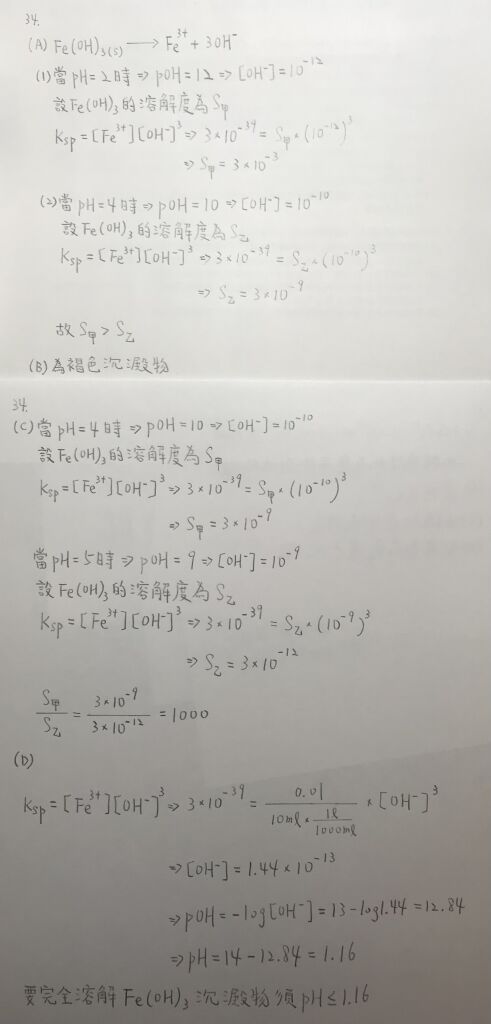 34.
(A) Fe(OH)₃(s) ⟶ Fe³⁺ + 3OH⁻
(1)當pH=2時⇒pOH=12⇒[OH⁻]=10⁻¹²
設Fe(OH)₃的溶解度為S甲
Ksp=[Fe³⁺][OH⁻]³⇒3×10⁻³⁹=S甲×(10⁻¹²)³
⇒S甲=3×10⁻³
(2)當pH=4時⇒pOH=10⇒[OH⁻]=10⁻¹⁰
設Fe(OH)₃的溶解度為S乙
Ksp=[Fe³⁺][OH⁻]³⇒3×10⁻³⁹=S乙×(10⁻¹⁰)³
⇒S乙=3×10⁻⁹
故S甲>S乙
(B)為褐色沉澱物
34.
(C)當pH=4時⇒pOH=10⇒[OH⁻]=10⁻¹⁰
設Fe(OH)₃的溶解度為S甲
Ksp=[Fe³⁺][OH⁻]³⇒3×10⁻³⁹=S甲×(10⁻¹⁰)³
⇒S甲=3×10⁻⁹
當pH=5時⇒pOH=9⇒[OH⁻]=10⁻⁹
設Fe(OH)₃的溶解度為S乙
Ksp=[Fe³⁺][OH⁻]³⇒3×10⁻³⁹=S乙×(10⁻⁹)³
⇒S乙=3×10⁻¹²
S甲/S乙=3×10⁻⁹/3×10⁻¹²=1000
(D)
Ksp=[Fe³⁺][OH⁻]³⇒3×10⁻³⁹=0.01/(10ml×1l/1000ml)×[OH⁻]³
⇒[OH⁻]=1.44×10⁻¹³
⇒pOH=-log[OH⁻]=13-log1.44=12.84
⇒pH=14-12.84=1.16
要完全溶解Fe(OH)₃沉澱物須pH≤1.16